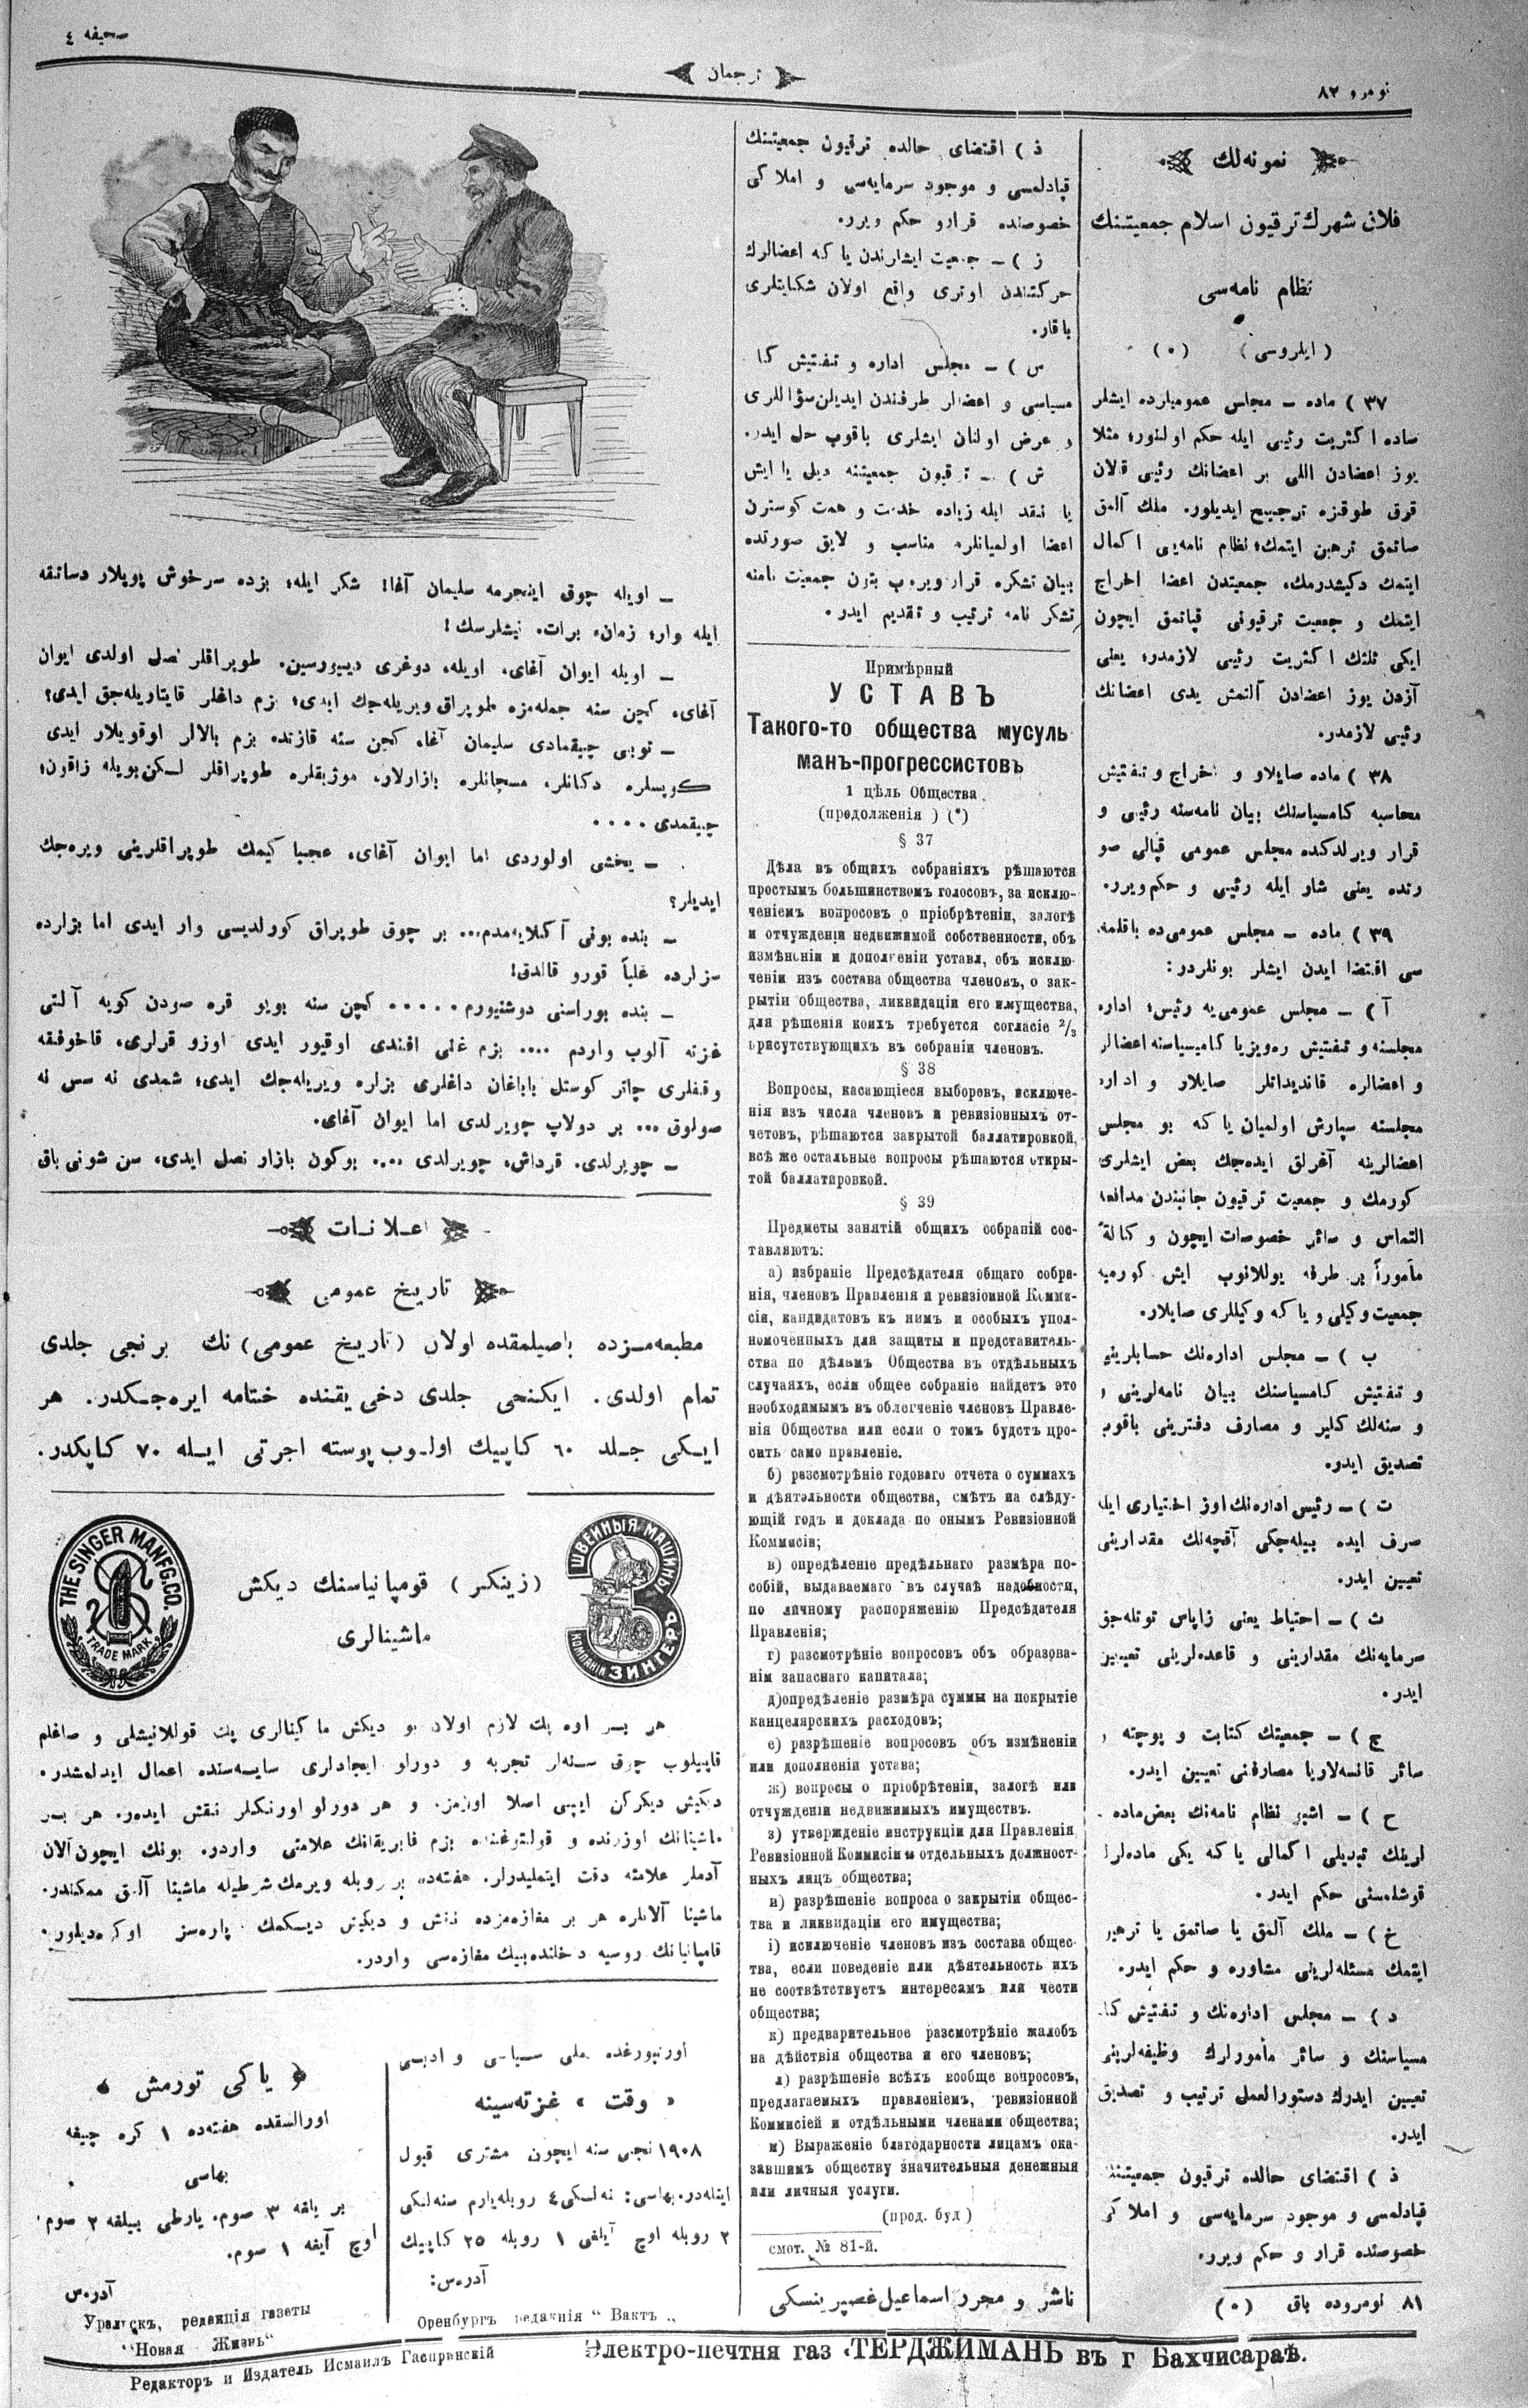 نومرو ٨٢
ترجمان
صحیفه ٤
نمونه‌لك
فلان شهرك ترقیون اسلام جمعیتنك
نظام نامه‌سی
(ایلروسی) (٠)
٣٧ ) ماده – مجلس عمومیارده ایشلر
ساده اكثریت رئیی ایله حكم اولنور؛ مثلا
یوز اعضادن اللی بر اعضانك رئیی قالان
قرق طوقزه ترجیح ایدیلور. ملك آلمق
صاتمق ترهین ایتمك؛ نظام نامه‌یی اكمال
ایتمك دكیشدرمك، جمعیتدن اعضا اخراج
ایتمك و جمعیت ترقیونی قپاتمق ایچون
ایكی ثلثك اكثریت رئیی لازمدر؛ یعنی
آزدن یوز اعضادن آلتمش یدی اعضانك
رئیی لازمدر.
٣٨ ) ماده صایلاو و اخراج و تفتیش
محاسبه كامسیاسنك بیان نامه‌سنه رئیی و
قرار ویرلدكده مجلس عمومی قپالی صو
رتده یعنی شار ایله رئیی و حكم ویرر.
٣٩ ) ماده – مجلس عمومی‌ده باقلمه
سی اقتضا ایدن ایشلر بونلردر:
آ ) – مجلس عمومی‌یه رئیس؛ اداره
مجلسنه و تفتیش ره‌ویزیا كامیسیاسنه اعضالر
و اعضالره قاندیداتلر صایلار و اداره
مجلسنه سپارش اولمیان یا كه بو مجلس
اعضالرینه آغرلق ایده‌جك بعض ایشلری
كورمك و جمعیت ترقیون جانبندن مدافعه
التماس و سائر خصوصات ایچون و كالةً
مأموراً بر طرفه یوللانوب ایش كورمیه
جمعیت وكیلی و یا كه وكیللری صایلار.
ب ) – مجلس اداره‌نك حسابلرینی
و تفتیش كامسیاسنك بیان نامه‌لرینی و
و سنه‌لك كلیر و مصارف دفترینی باقوب
تصدیق ایدر.
ت ) – رئیس اداره‌نك اوز اختیاری ایله
صرف ایده بیله‌جكی آقچه‌نك مقدارینی
تعیین ایدر.
ث ) – احتیاط یعنی زاپاس توتله‌جق
سرمایه‌نك مقدارینی و قاعده‌لرینی تعیین
ایدر.
ج ) – جمعیتك كتابت و پوچته و
سائر قانسه‌لاریا مصارفنی تعیین ایدر.
ح ) – اشبو نظام نامه‌نك بعض ماده
لرینك تبدیلی اكمالی یا كه یكی ماده‌لر
قوشلمسنی حكم ایدر.
خ ) – ملك آلمق یا صاتمق یا ترهین
ایتمك مسئله‌لرینی مشاوره و حكم ایدر.
د ) – مجلس اداره‌نك و تفتیش كا
مسیاسنك و سائر مأمورلرك وظیفه‌لرینی
تعیین ایدرك دستورالعمل ترتیب و تصدیق
ایدر.
ذ ) اقتضای حالده ترقیون جمعیتنك
قپادلمسی و موجود سرمایه‌سی و املاكی
خصوصنده قرار و حكم ویرر.
٨١ نومروده باق (٠)
ذ ) اقتضای حالده ترقیون جمعیتنك
قپادلمسی و موجود سرمایه‌سی و املاكی
خصوصنده قرارو حكم ویرر.
ز ) – جمعیت ایشلرندن یا كه اعضالرك
حركتندن اوتری واقع اولان شكایتلری
باقار.
س ) – مجلس اداره و تفتیش كا
مسیاسی و اعضالر طرفندن ایدیلن سؤاللری
و عرض اولنان ایشلری باقوب حل ایدر.
ش ) – ترقیون جمعیتنه دیل یا ایش
یا نقد ایله زیاده خدمت و همت كوسترن
اعضا اولمیانلره مناسب و لایق صورتده
بیان تشكره قرار ویروب بتون جمعیت نامنه
تشكر نامه ترتیب و تقدیم ایدر.
Примѣрный
УСТАВЪ
Такого-то общества мусуль
манъ-прогрессистовъ
1 цѣль Общества
(продолженія) (*)
§ 37
Дѣла въ общихъ собраніяхъ рѣшаются
простымъ большинствомъ голосовъ, за исклю-
ченіемъ вопросовъ о пріобрѣтеніи, залогѣ
и отчужденіи недвижимой собственности, объ
измѣненіи и дополненіи устава, объ исклю-
ченіи изъ состава общества членовъ, о зак-
рытіи общества, ликвидаціи его имущества,
для рѣшенія коихъ требуется согласіе 2/3
присутствующихъ въ собраніи членовъ.
§ 38
Вопросы, касающіеся выборовъ, исключе-
нія изъ числа членовъ и ревизіонныхъ от-
четовъ, рѣшаются закрытой баллатировкой,
всѣ же остальные вопросы рѣшаются откры-
той баллатировкой.
§ 39
Предметы занятій общихъ собраній сос-
тавляютъ:
а) избраніе Предсѣдателя общаго собра-
нія, членовъ Правленія и ревизіонной Комми-
сіи, кандидатовъ къ нимъ и особыхъ упол-
номоченныхъ для защиты и представитель-
ства по дѣламъ Общества въ отдѣльныхъ
случаяхъ, если общее собраніе найдетъ это
необходимымъ въ облегченіе членовъ Правле-
нія Общества или если о томъ будетъ про-
сить само правленіе.
б) разсмотрѣніе годоваго отчета о суммахъ
и дѣятельности общества, смѣтъ на слѣду-
ющій годъ и доклада по онымъ Ревизіонной
Коммисіи;
в) опредѣленіе предѣльнаго размѣра по-
собій, выдаваемаго въ случаѣ надобности,
по личному распоряженію Предсѣдателя
Правленія;
г) разсмотрѣніе вопросовъ объ образова-
нім запаснаго капитала;
д)опредѣленіе размѣра суммы на покрытіе
канцелярскихъ расходовъ;
е) разрѣшеніе вопросовъ объ измѣненіи
или дополненіи устава;
ж) вопросы о пріобрѣтеніи, залогѣ или
отчужденіи недвижимыхъ имуществъ.
з) утвержденіе инструкціи для Правленія
Ревизіонной Коммисіи и отдѣльныхъ должност-
ныхъ лицъ общества;
и) разрѣшеніе вопроса о закрытіи общес-
тва и ликвидаціи его имущества;
і) исключеніе членовъ изъ состава общес-
тва, если поведеніе или дѣятельность ихъ
не соотвѣтствуетъ интересамъ или чести
общества;
к) предварительное разсмотрѣніе жалобъ
на дѣйствія общества и его членовъ;
л) разрѣшеніе всѣхъ вообще вопросовъ,
предлагаемыхъ правленіемъ, ревизіонной
Коммисіей и отдѣльными членами общества;
м) Выраженіе благодарности лицамъ ока-
завшимъ обществу значительныя денежныя
или личныя услуги.
(прод. буд)
смот. № 81-й.
ناشر و محرر اسماعیل غصپرینسكی
– اویله چوق اینجرمه سلیمان آغا! شكر ایله؛ بزده سرخوش پوپلار دساتقه
ایله وار؛ زمانه برات. نیشلرسك!
– اویله ایوان آغای، اویله، دوغری دییورسین. طوپراقلر نصل اولدی ایوان
آغای. كچن سنه جمله‌مزه طوپراق ویریله‌جك ایدی؛ بزم داغلر قایتاریله‌جق ایدی؟
– توبی چیقمادی سلیمان آغا. كچن سنه قازنده بزم بالالر اوقویلار ایدی
كوپسلره دكانلر، مسچانلره بازارلار، موژیقلره طوپراقلر لسكن بویله زاقون؛
چیقمدی ....
– یخشی اولوردی اما ایوان آغای، عجبا كیمك طوپراقلرینی ویره‌جك
ایدیلر؟
– بنده بونی آكلایه‌مدم... بر چوق طوپراق كوولدیسی وار ایدی اما بزلرده
سزلرده غلباً قورو قالدق!
– بنده بوراسنی دوشنیورم ..... كچن سنه بویو قره صودن كویه آلتی
غزته آلوب واردم .... بزم غنی افندی اوقیور ایدی اوزو قرلری، قاخوفقه
وقفلری چاتر كوستل باباغان داغلری بزلره ویریله‌جك ایدی؛ شمدی نه سس نه
صولوق ... بر دولاپ چویرلدی اما ایوان آغای.
– چویرلدی. قرداش، چویرلدی .... بوكون بازار نصل ایدی، سن شونی باق
اعلانات
تاریخ عمومی
مطبعه‌مزده باصیلمقده اولان (تاریخ عمومی) نك برنجی جلدی
تمام اولدی. ایكنجی جلدی دخی یقنده ختامه ایره‌جكدر. هر
ایكی جلد ٦٠ كاپیك اولوب پوسته اجرتی ایله ٧٠ كاپكدر.
THE SINGER MANFG. CO.
TRADE MARK
(زینكر) قومپانیاسنك دیكش
ماشینالری
ШВЕЙНЫЯ МАШИНЫ
КОМПАНІИ ЗИНГЕРЪ
هر بر اوه پك لازم اولان بو دیكش ماكینالری پك قوللانیشلی و صاغلم
قاپیلوب چوق سنه‌لر تجربه و دورلو ایجادلری سایه‌سنده اعمال ایدلمشدر.
دیكیش دیكركن ایپی اصلا اوزمز. و هر دورلو اورنكلر نقش ایده‌ر. هر بر
ماشینانك اوزرنده و قولتوغنده بزم فابریقانك علامتی واردر. بونك ایچون آلان
آدملر علامته دقت ایتملیدرلر. هفته‌ده بر روبله ویرمك شرطیله ماشینا آلمق ممكندر.
ماشینا آلانلره هر بر مغازه‌مزده نقش و دیكیش دیكمك پاره‌سز اوكره‌دیلور.
قامپانیانك روسیه داخلنده بیك مغازه‌سی واردر.
اورنبورغده ملی سیاسی و ادبی
« وقت » غزته‌سینه
١٩٠٨ نجی سنه ایچون مشتری قبول
ایتله‌در. بهاسی: نه‌لسكی ٤ روبله یارم سنه‌لیكی
٢ روبله اوچ آیلغی ١ روبله ٢٥ كاپیك
آدرس:
Оренбургъ редакція “ Вактъ „
﴿ یاكی تورمش ﴾
اورالسقده هفته‌ده ١ كره چیقه
بهاسی
بر یلغه ٣ صوم، یارطی ییلغه ٢ صوم
اوچ آیغه ١ صوم.
آدرس
Уральскъ, редакція газеты
“Новая Жизнь“
Редакторъ и Издатель Исмаилъ Гаспринскій
Электро-печтня газ «ТЕРДЖИМАНЬ въ г Бахчисараѣ.